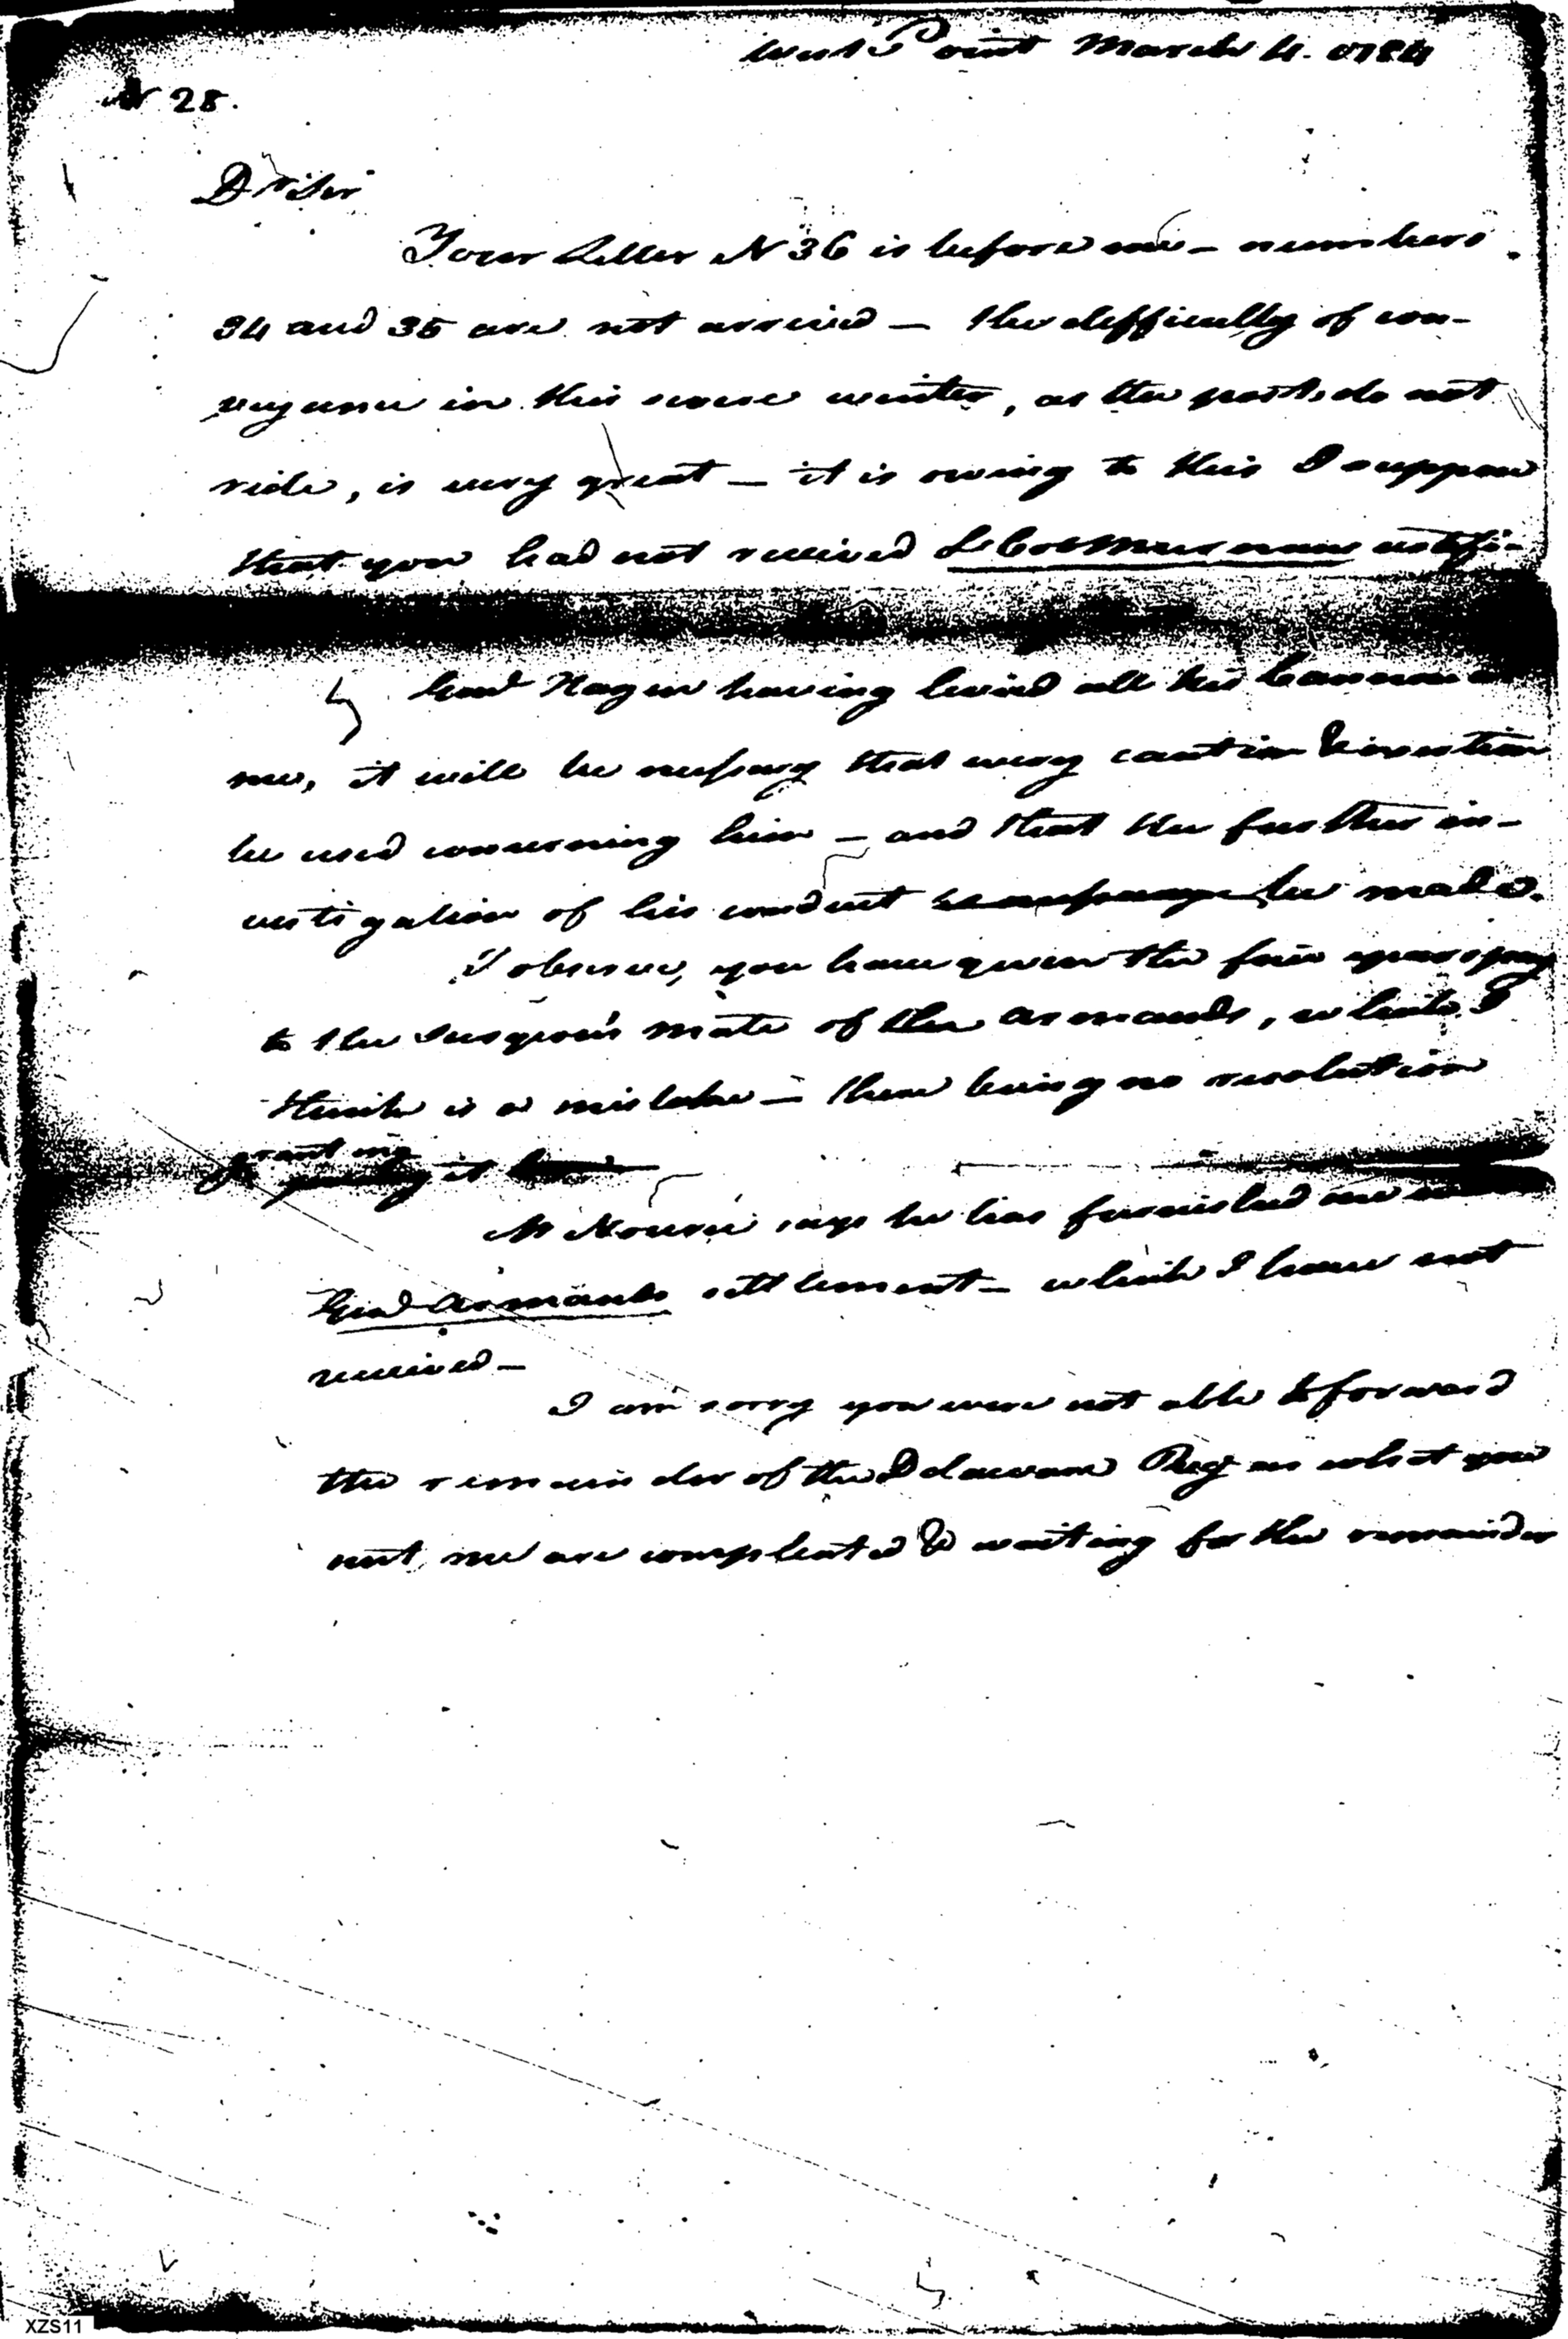 West Point March 4. 1784
N 28.
Dr Sir
Your Letter N 36 is before me - numbers
34 and 35 are not arrived - the difficulty of con-
veyance in this severe winter, as the posts do not
ride, is very great - it is owing to this I suppose
that you had not received
Genl Hazen having levied all his Cannon
me, it will be necessary that every caution &
be used concerning him - and that the further in-
vestigation of his conduct be made.
I observe, you have given the five years pay
to the surgeon's mate of the Armands, which I
think is a mistake - there being no resolution
granting it
Mr Nourse says he has furnished me
Genl Armands settlement - which I have not
received -
I am sorry you were not able to forward
the remainder of the Delaware Regt as what you
sent me are compleated & waiting for the remainder
XZS11